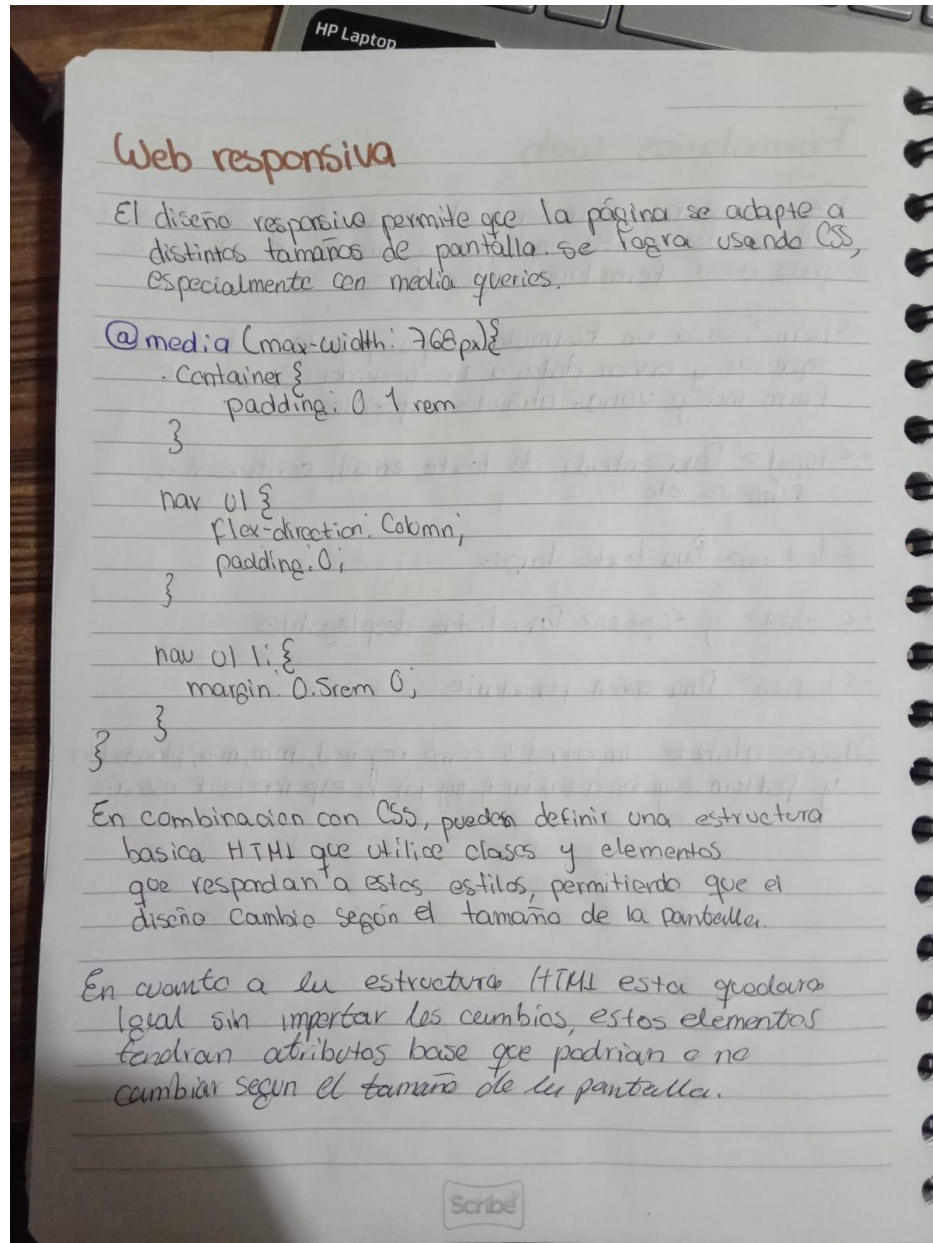 HP Laptop
Web responsiva
El diseño responsivo permite que la página se adapte a
distintos tamaños de pantalla. se logra usando CSS,
especialmente con media queries.
@media (max-width: 768px){
.Container {
padding: 0 1rem
}
nav ul {
flex-direction: Column;
padding: 0;
}
nav ul li {
margin: 0.5rem 0;
}
}
En combinacion con CSS, puedes definir una estructura
basica HTML que utilice clases y elementos
que respondan a estos estilos, permitiendo que el
diseño cambie según el tamaño de la pantalla.
En cuanto a la estructura HTML esta quedara
igual sin importar los cambios, estos elementos
tendran atributos base que podrian o no
cambiar segun el tamaño de la pantalla.
Scribe